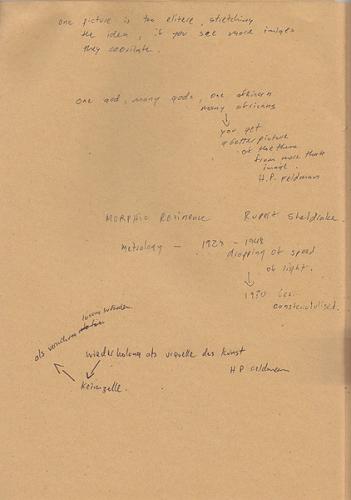 one picture is too elitere, stretching
the idea, if you see more images
they
one god, many gods, one african
many africans
you get
a better picture
of the theme
from more than
image.
H.P. Feldmann
MORPHIC RESINENCE Rupert Sheldrake
Metrology — 1923 - 1948
dropping of speed
of light.
1970
als
wiederholung als der Kunst
H P Feldmann
Keimzelle.